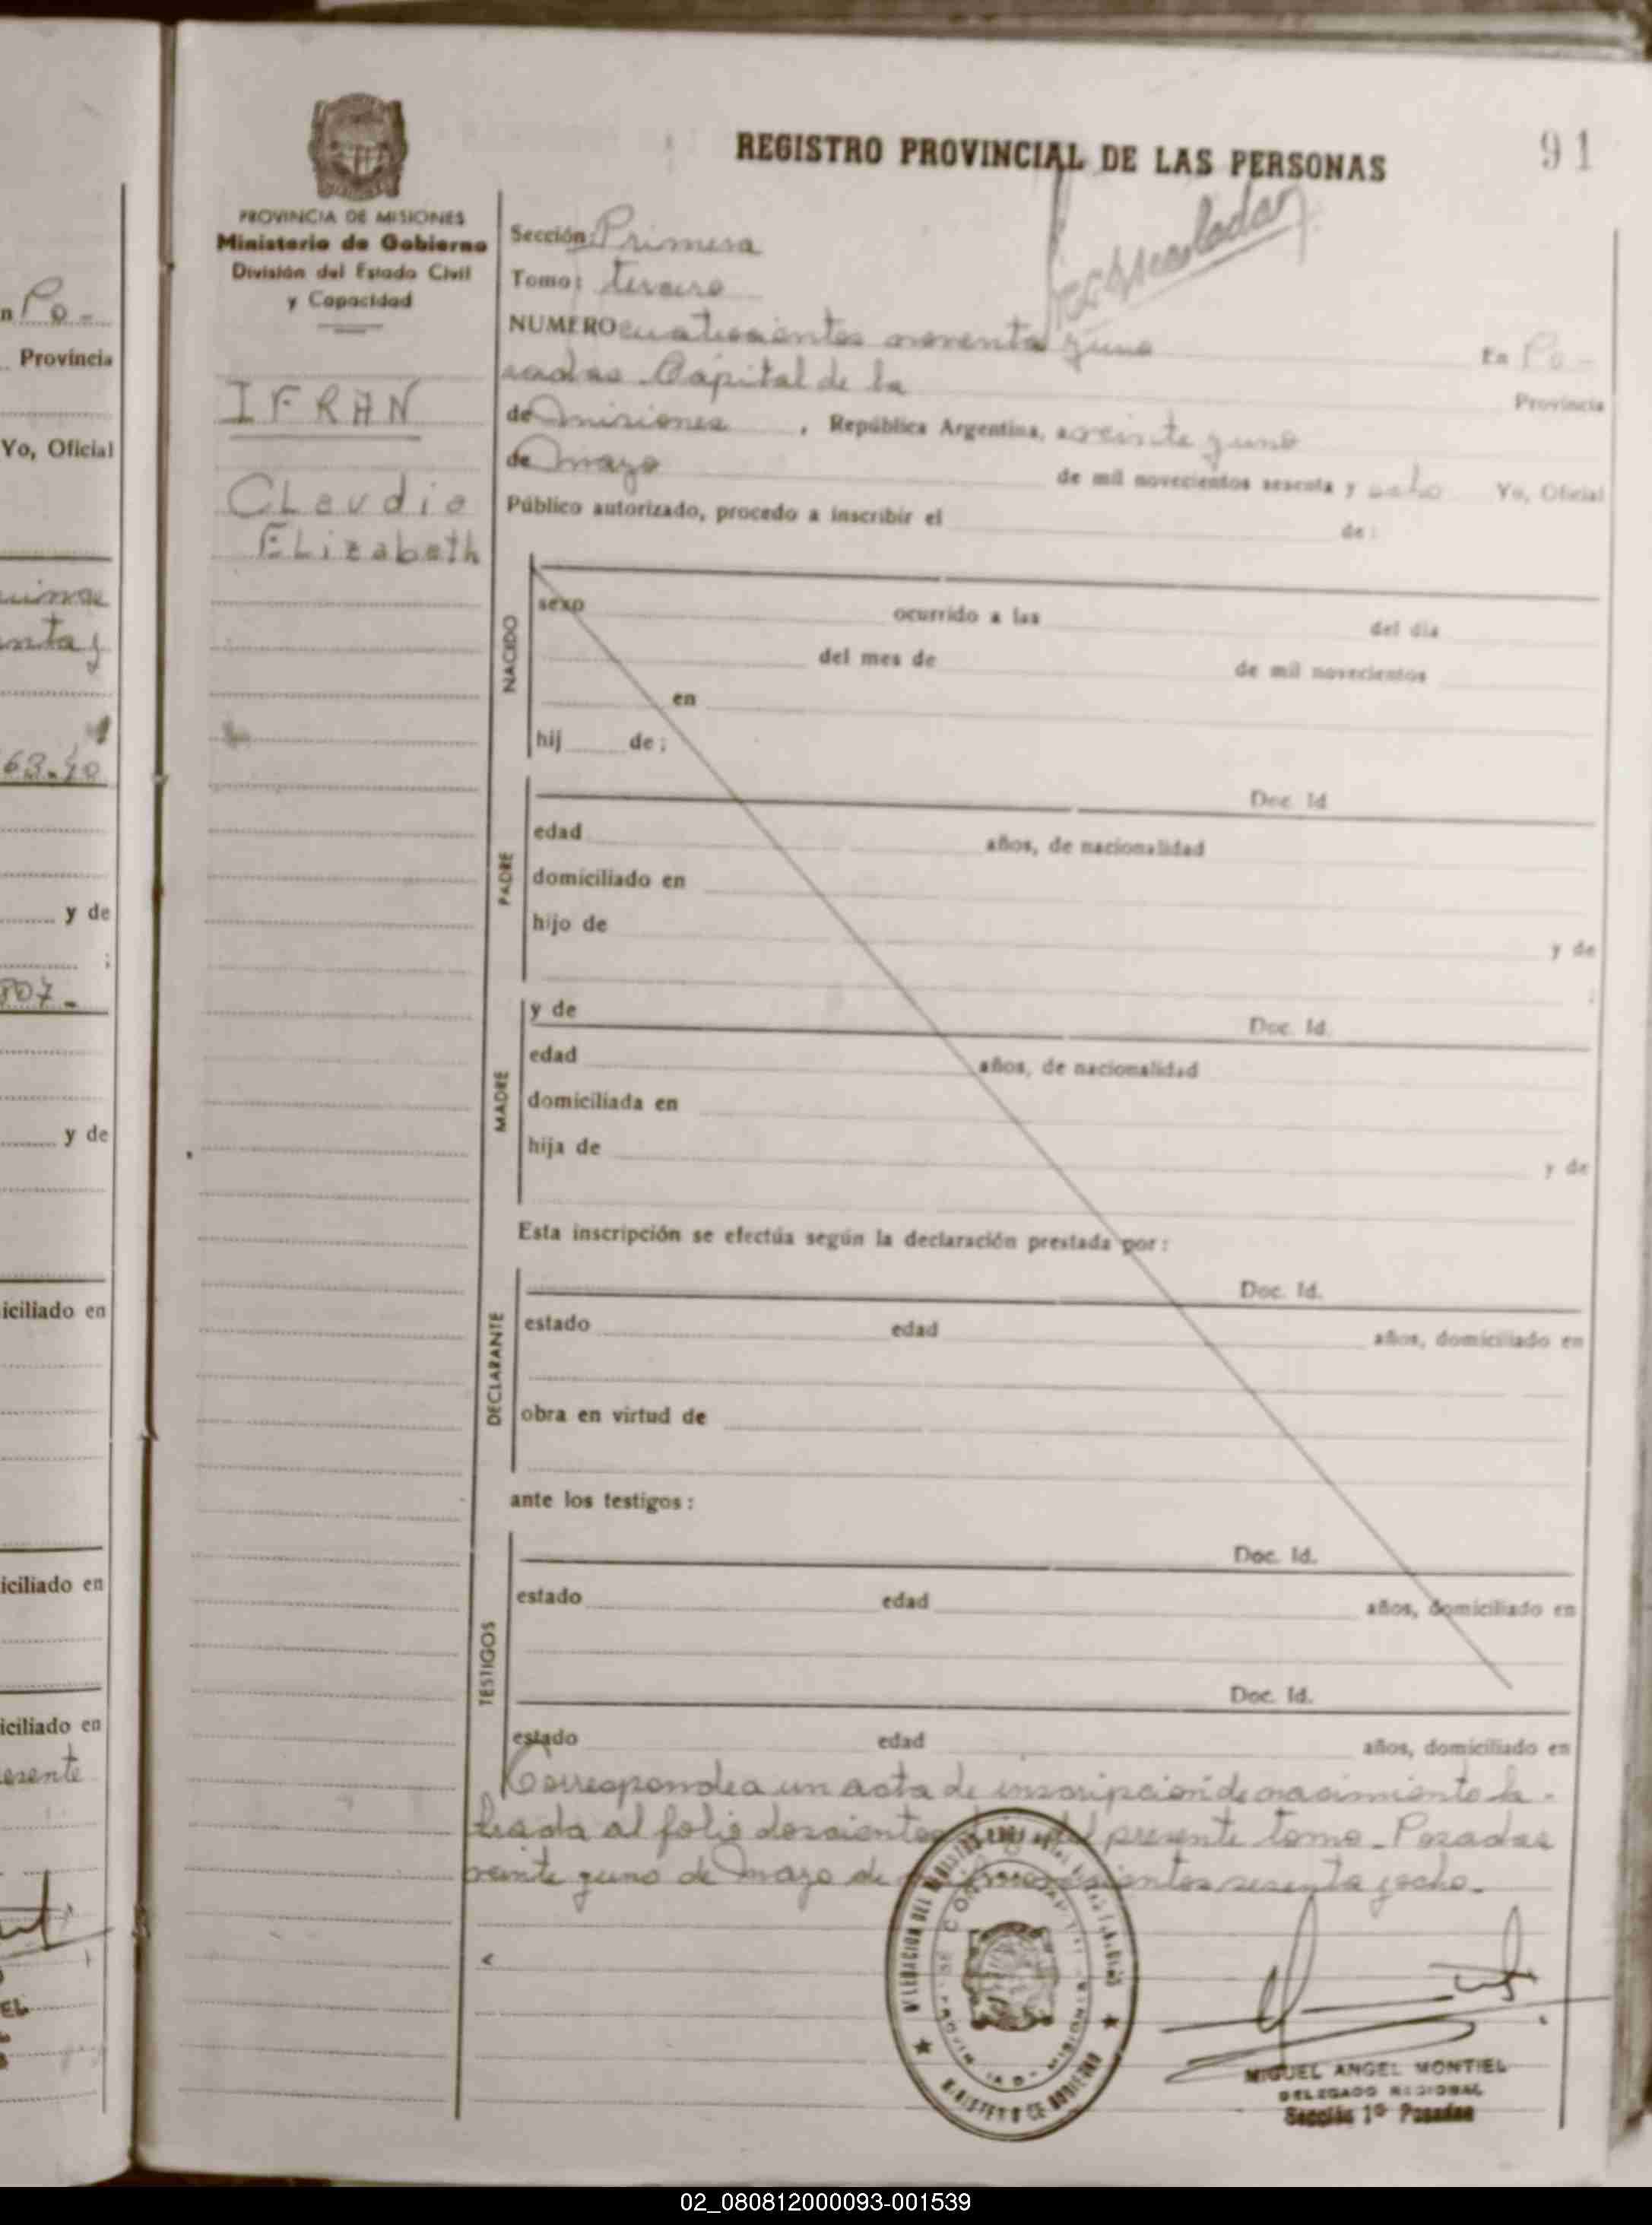 REGISTRO PROVINCIAL DE LAS PERSONAS
91
PROVINCIA DE MISIONES
Ministerio de Gobierno
División del Estado Civil
y Capacidad
IFRAN
Claudia
Elizabeth
Sección: Primera
Tomo: tercero
NUMERO cuatrocientos noventa y uno En Po-
sadas Capital de la Provincia
de Misiones, República Argentina, a veinte y uno
de mayo de mil novecientos sesenta y ocho Yo, Oficial
Público autorizado, procedo a inscribir el de:
NACIDO
sexo ocurrido a las del día
del mes de de mil novecientos
en
hij de;
PADRE
Doc. Id
edad años, de nacionalidad
domiciliado en
hijo de y de
;
MADRE
y de Doc. Id.
edad años, de nacionalidad
domiciliada en
hija de y de
Esta inscripción se efectúa según la declaración prestada por:
DECLARANTE
Doc. Id.
estado edad años, domiciliado en
obra en virtud de
ante los testigos:
TESTIGOS
Doc. Id.
estado edad años, domiciliado en
Doc. Id.
estado edad años, domiciliado en
Corresponde a un acta de inscripción de nacimiento la-
brada al folio doscientos del presente tomo. Posadas
veinte y uno de Mayo de mil novecientos sesenta y ocho.
MINISTERIO DE GOBIERNO
MIGUEL ANGEL MONTIEL
DELEGADO REGIONAL
Sección 1ª Posadas
n Po-
Provincia
Yo, Oficial
y de
;
807-
y de
iciliado en
iciliado en
iciliado en
esente
EL
02_080812000093-001539